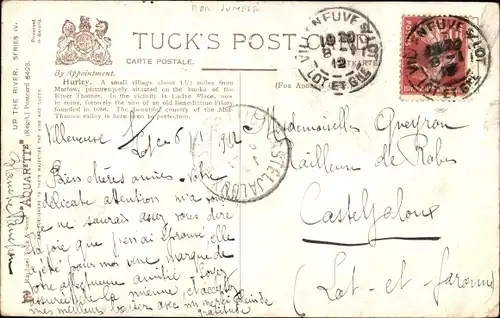 Mon Jumelé
TUCK'S POST
CARTE POSTALE.
By Appointment.
Hurley. A small village about 1½ miles from
Marlow, picturesquely situated on the banks of the
River Thames. In the vicinity is Ladye Place, now
in ruins, formerly the site of an old Benedictine Priory
founded in 1086. The beautiful country of the Mid-
Thames valley is here seen to perfection.
(For
UP THE RIVER. SERIES IV.
"AQUARETTE" (Regd.) Postcard 6423.
VILLENEUVE S/LOT
19 20
12
LOT ET GNE
CASTELJALOUX
Villeneuve
Lot le 6/1 1912
Bien chères amies Votre
délicate attention m'a
ne saurais assez vous dire
la joie que j'en ai éprouvé, elle
a été pour moi une marque de
votre affectueuse amitié Soyez
assurées de la mienne, et avec
mes meilleurs baisers avec ma
gratitude
Mesdemoiselles Queyron
Tailleuse de Robes
Casteljaloux
(Lot-et-Garonne)